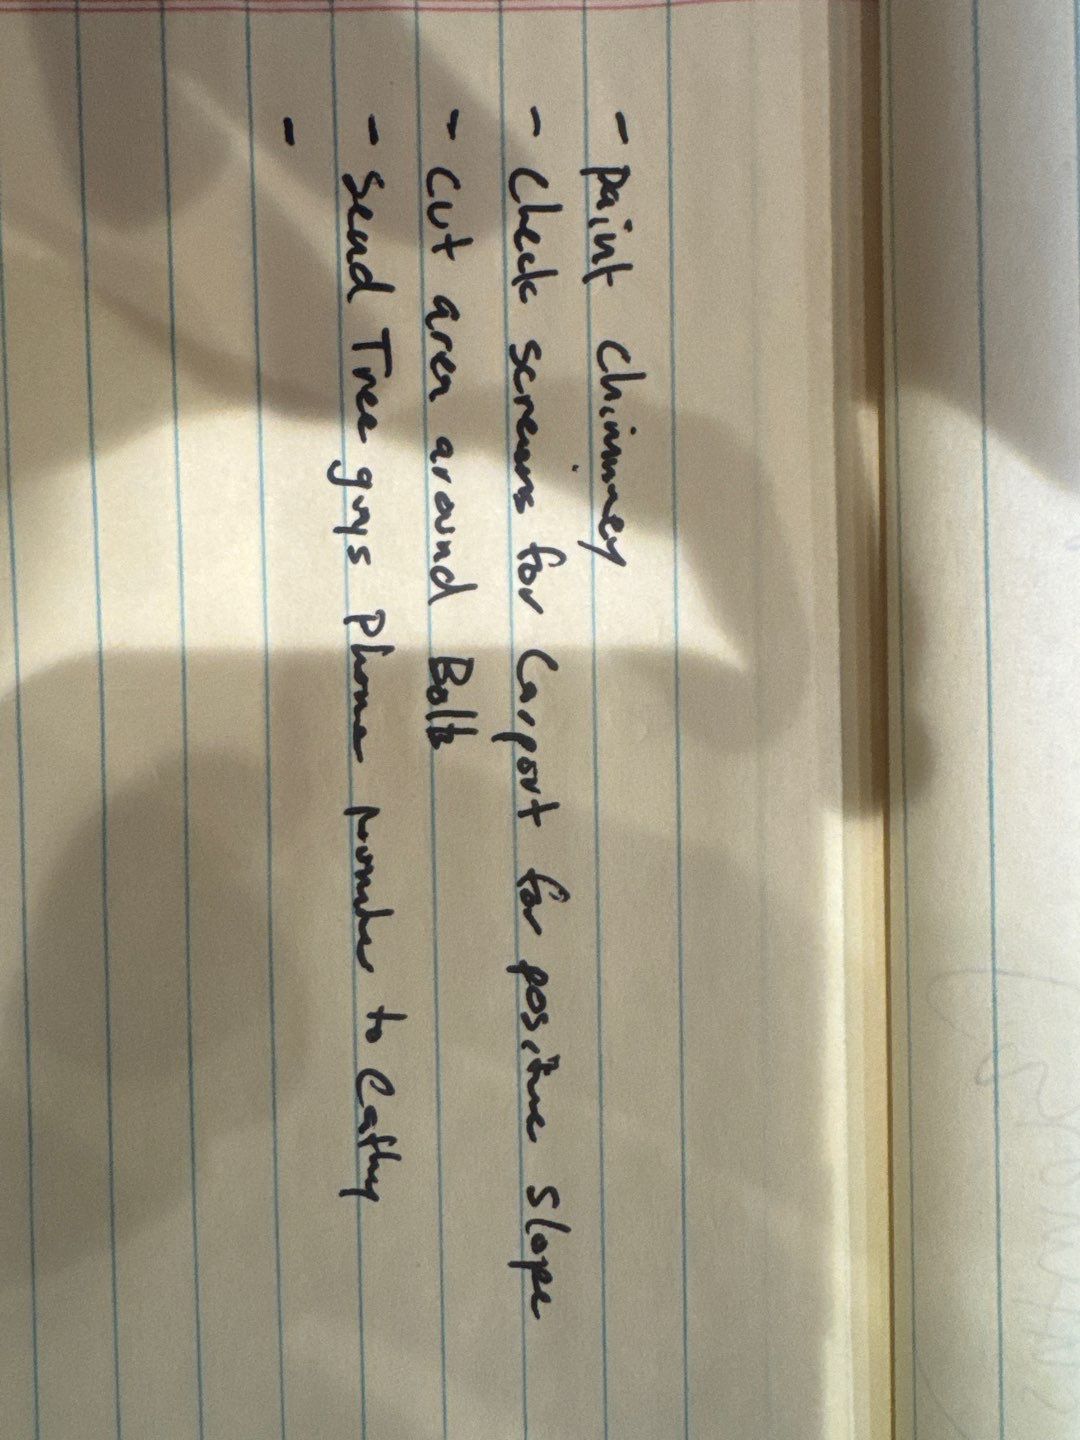 - Paint chimney
- Check screens for Carport for positive slope
- Cut area around Bolts
- Send Tree guys Phone number to Cathy
-